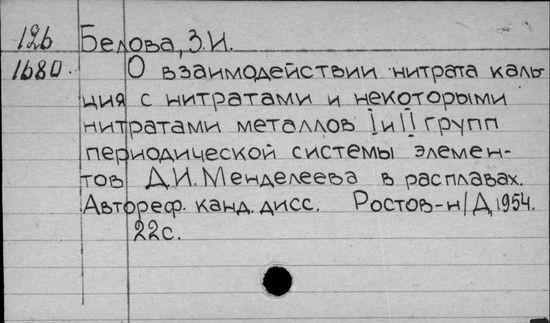 126 Белова, З.И.
1680. О взаимодействии нитрата каль-
ция с нитратами и некоторыми
нитратами металлов I и II групп
периодической системы элемен-
тов Д.И. Менделеева в расплавах.
Автореф. канд. дисс. Ростов-н/Д, 1954.
22с.